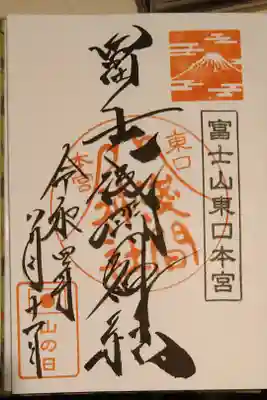 富士山東口本宮
冨士浅間神社
東口
本宮
令和四年
八月十一日
山の日